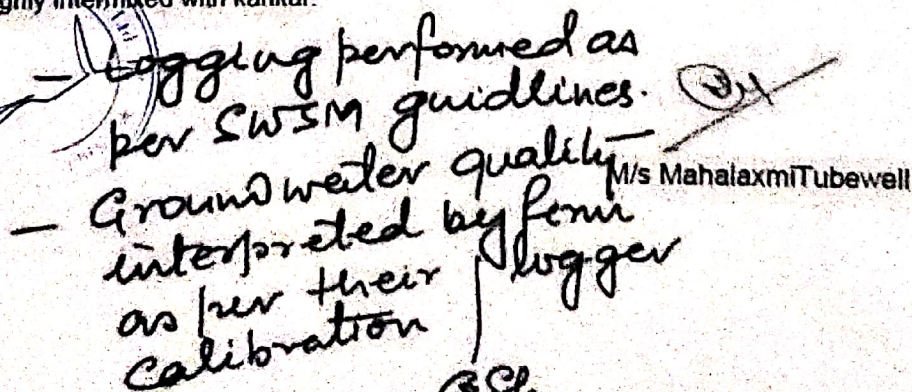 intermixed with kankar.
- Logging performed as
per SWSM guidlines.
M/s MahalaxmiTubewell
- Groundwater quality
interpreted by firm
as per their logger
calibration